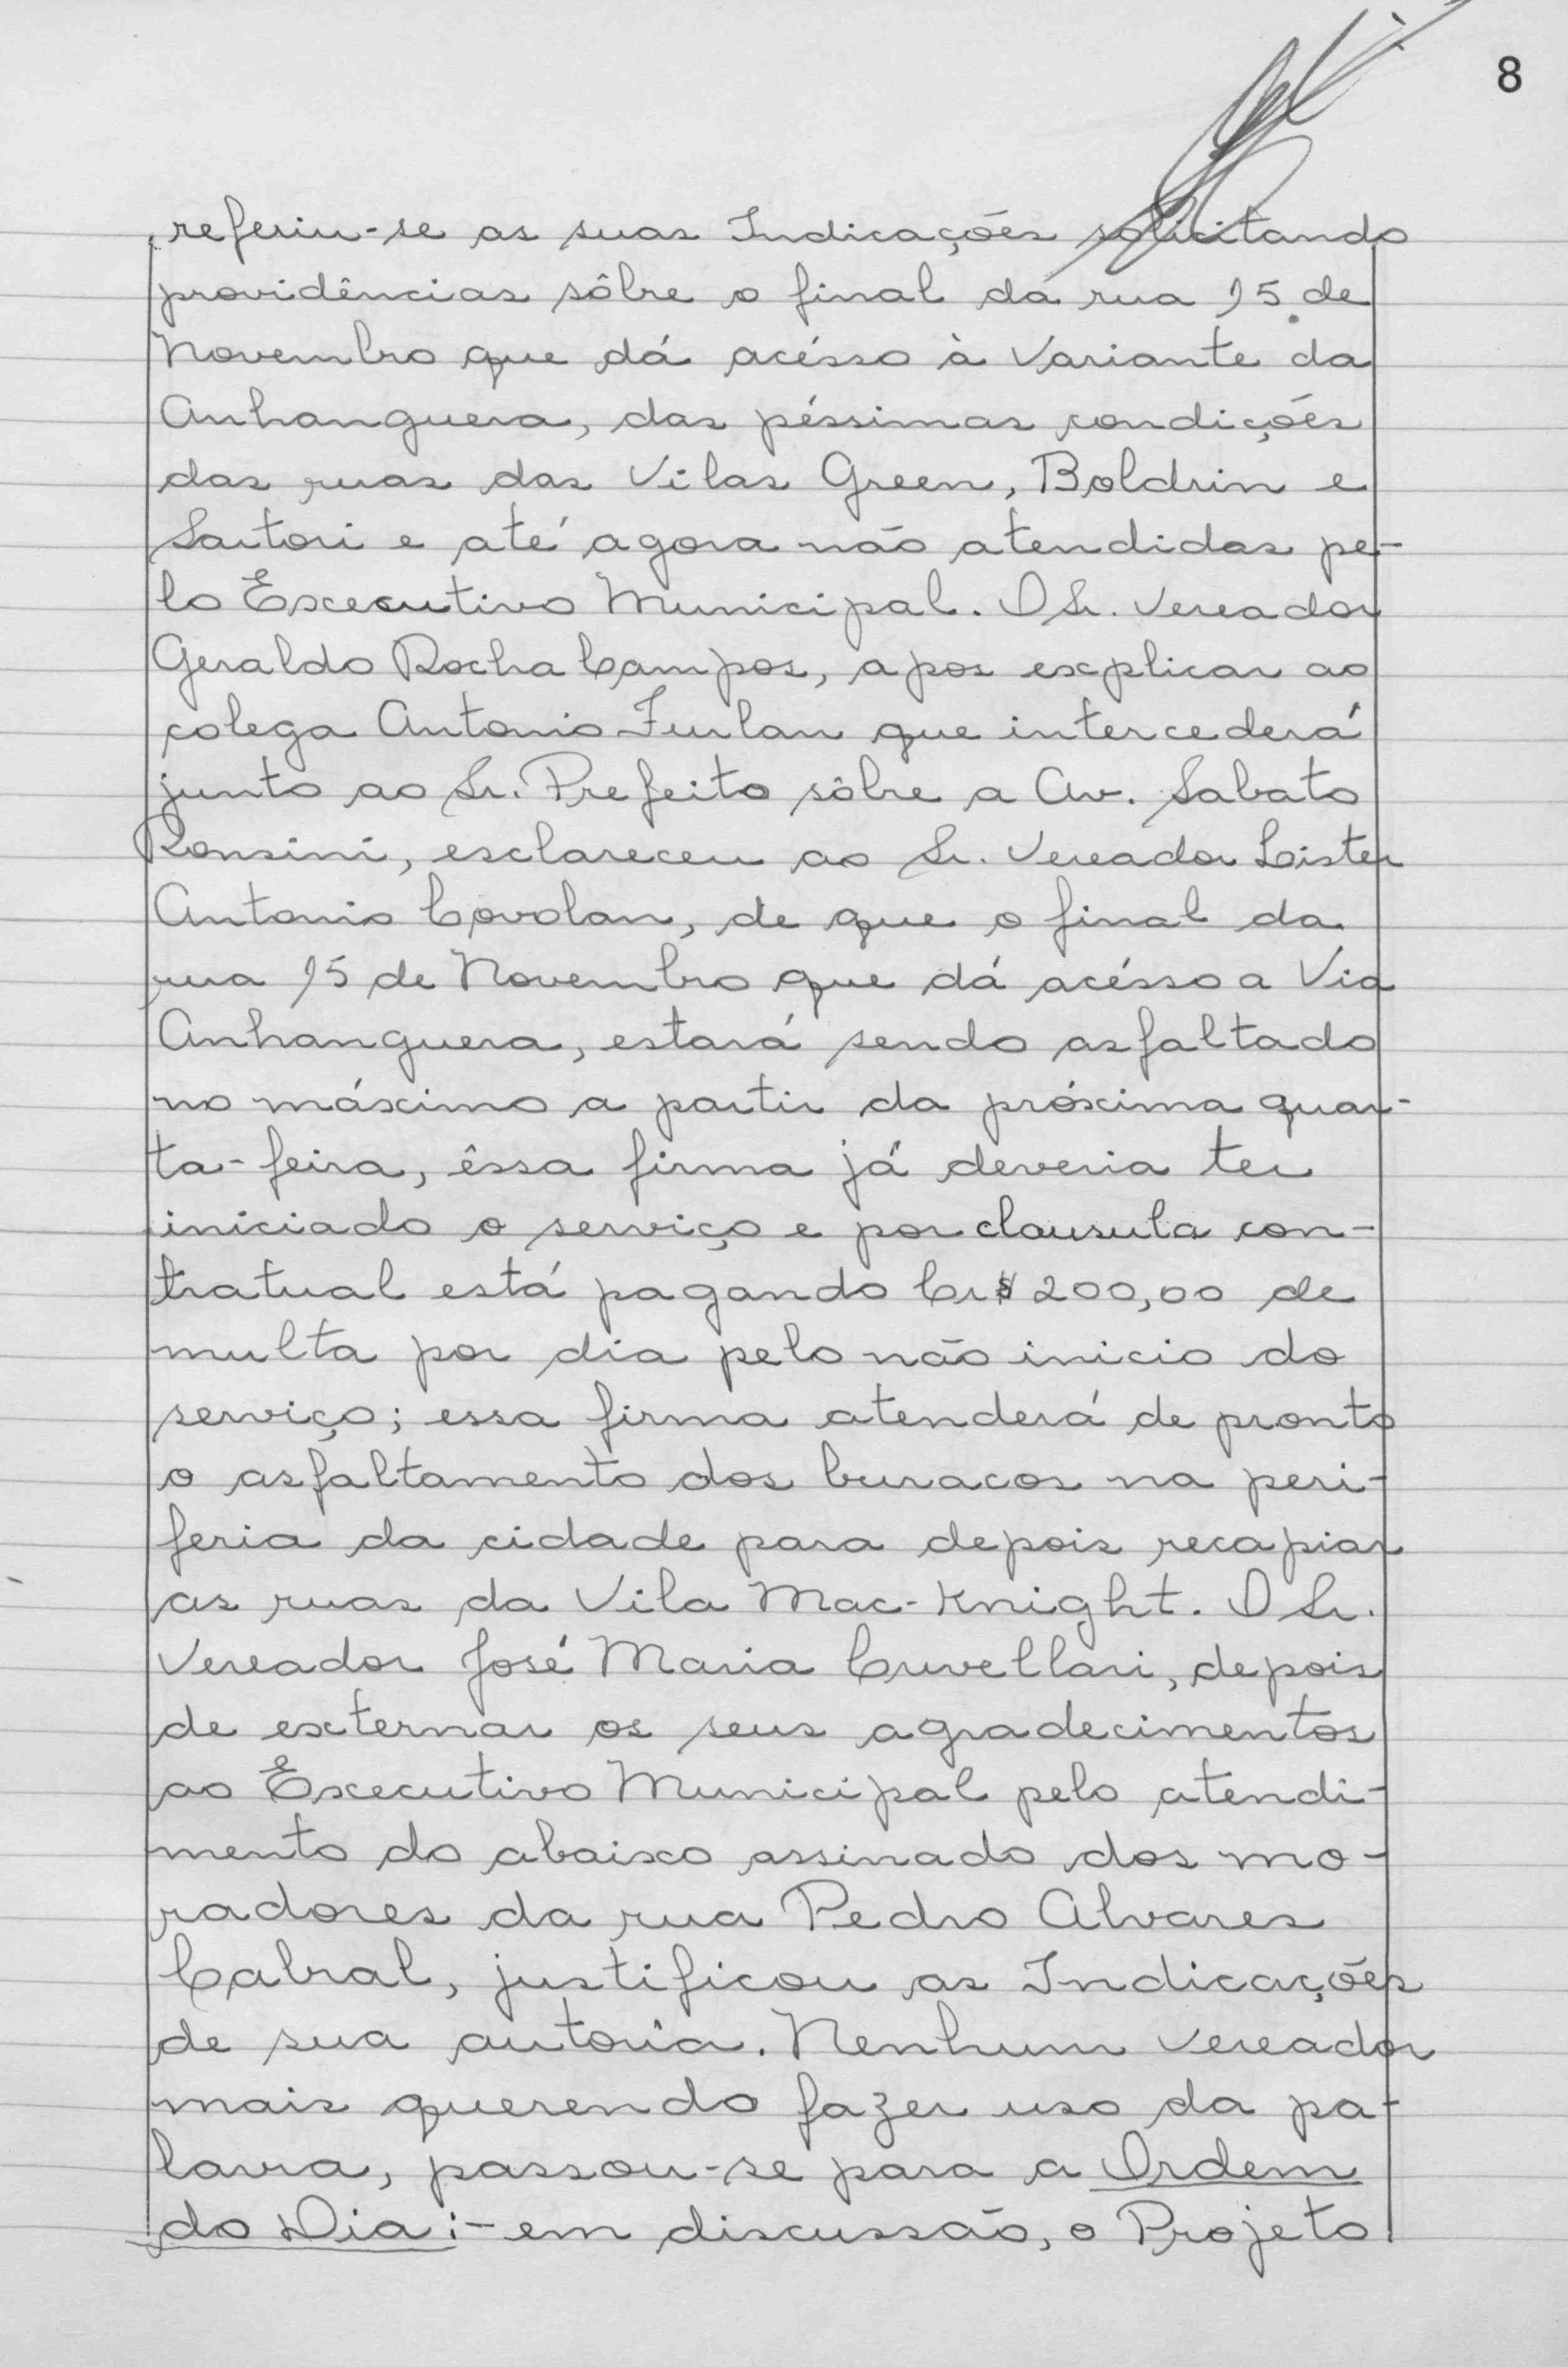 8
referiu-se as suas Indicações solicitando
providências sôbre o final da rua 15 de
Novembro que dá acésso à Variante da
Anhanguera, das péssimas condições
das ruas das Vilas Green, Boldrin e
Sartori e até agora não atendidas pe-
lo Executivo Municipal. O Sr. Vereador
Geraldo Rocha Campos, apos explicar ao
colega Antonio Furlan que intercederá
junto ao Sr. Prefeito sôbre a Av. Sabato
Ronsini, esclareceu ao Sr. Vereador Lister
Antonio Covolan, de que o final da
rua 15 de Novembro que dá acésso a Via
Anhanguera, estará sendo asfaltado
no máximo a partir da próxima quar-
ta-feira, êssa firma já deveria ter
iniciado o serviço e por clausula con-
tratual está pagando Cr$ 200,00 de
multa por dia pelo não inicio do
serviço; essa firma atenderá de pronto
o asfaltamento dos buracos na peri-
feria da cidade para depois recapiar
as ruas da Vila Mac-Knight. O Sr.
Vereador José Maria Cruvellari, depois
de externar os seus agradecimentos
ao Executivo Municipal pelo atendi-
mento do abaixo assinado dos mo-
radores da rua Pedro Alvares
Cabral, justificou as Indicações
de sua autoria. Nenhum vereador
mais querendo fazer uso da pa-
lavra, passou-se para a Ordem
do Dia:- em discussão, o Projeto